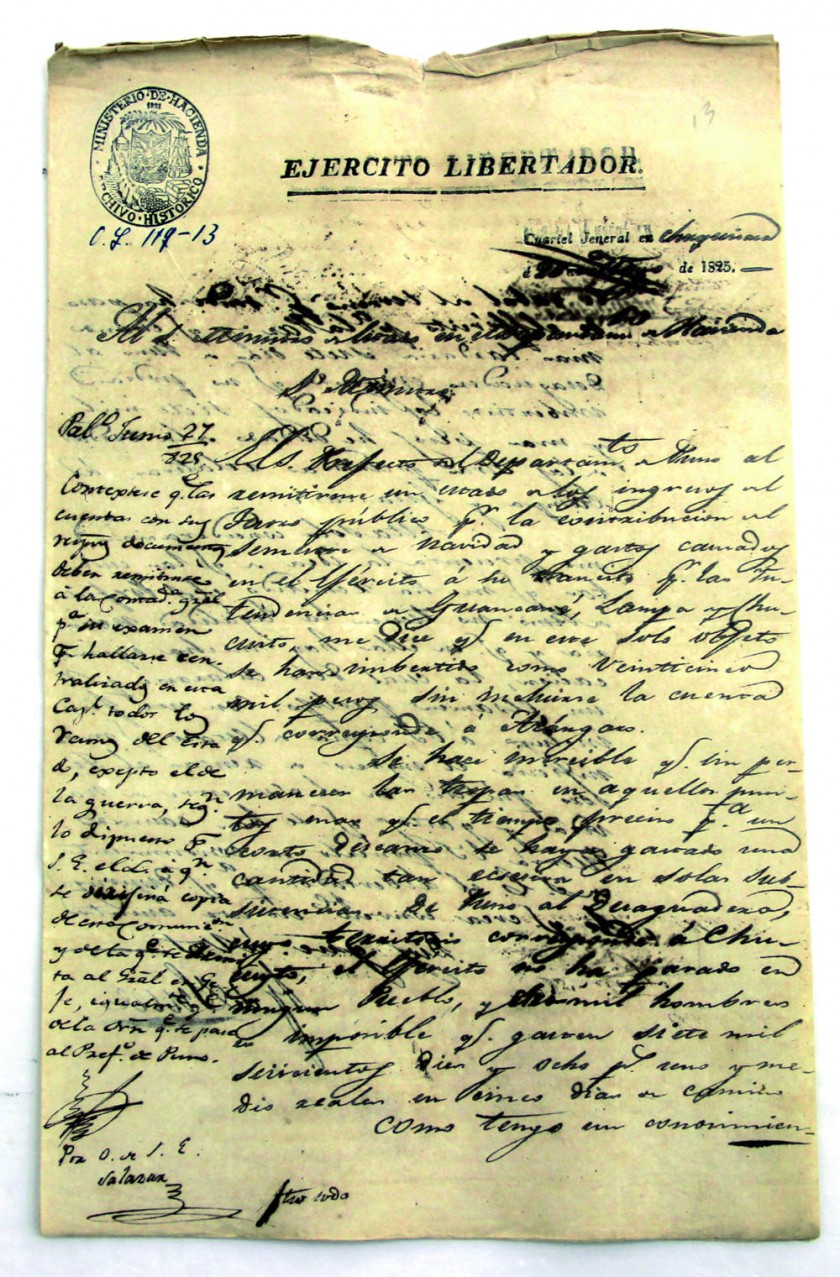 MINISTERIO·DE·HACIENDA
ARCHIVO·HISTORICO
O. L. 119-13
13
EJERCITO LIBERTADOR.
Cuartel Jeneral en
de 1825.
Al S. Ministro de Estado en el de Hacienda
S.r Ministro
Pal.o Junio 27
825
Contextese q.e las
cuentas con sus
respvos documentos
deben remitirse
á la Contad.a gral
p.a su examen
p.r hallarse cen-
tralizados en esta
Cap.l todos los
ramos del Esta
do, exepto el de
la guerra, seg.n
lo dispuesto p.r
S. E. el L. á q.n
se dirijirá copia
de esta comunic.on
y de la q.e
ta al Gral en Ge
fe, igualm.te q.e
de la orn q.e se pasa
al Pref.o de Puno.
Por O. de S. E.
Salazar
El S. Prefecto del Departam.to de Puno al
remitirme un estado de los ingresos del
Tesoro público p.r la contribucion del
semestre de Navidad y gastos causados
en el Ejército á su transito p.r las In-
tendencias de Guancané, Lampa y Chu-
cuito, me dice q.e en este solo objeto
se han imbertido como veinticinco
mil pesos sin incluirse la cuenta
q.e corresponde á Azángaro.
Se hace increible q.e sin per-
manecer las tropas en aquellos pun-
tos mas q.e el tiempo preciso p.a un
corto descanso se haya gastado una
cantidad tan excesiva en solas sub-
sistencias. De Puno al Desaguadero,
cuyo territorio corresponde á Chu-
cuito, el Ejército no ha parado en
ningun Pueblo, y mil hombres
es imposible q.e gasten siete mil
seiscientos dies y ocho p.s uno y me-
dio reales en cinco dias de camino
Como tengo un conocimien-